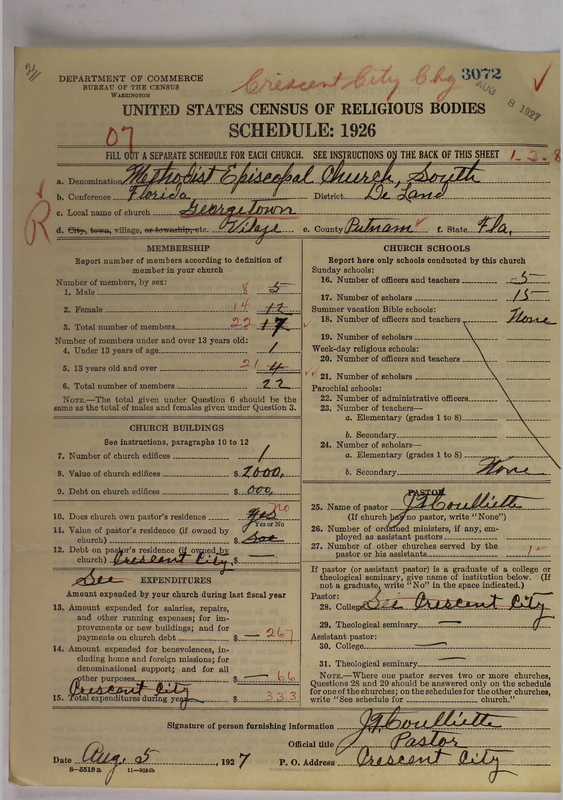 DEPARTMENT OF COMMERCE
BUREAU OF THE CENSUS
WASHINGTON
Crescent City Chg
3072
AUG 8 1927
UNITED STATES CENSUS OF RELIGIOUS BODIES
SCHEDULE: 1926
07
FILL OUT A SEPARATE SCHEDULE FOR EACH CHURCH. SEE INSTRUCTIONS ON THE BACK OF THIS SHEET
1-3-8
a. Denomination Methodist Episcopal Church, South
b. Conference Florida District De Land
c. Local name of church Georgetown
d. City, town, village, or township, etc. Village e. County Putnam f. State Fla.
R
MEMBERSHIP
Report number of members according to definition of
member in your church
Number of members, by sex:
1. Male 8 5
2. Female 14 12
3. Total number of members 22 17
Number of members under and over 13 years old:
4. Under 13 years of age 1
5. 13 years old and over 21 4
6. Total number of members 22
NOTE.—The total given under Question 6 should be the
same as the total of males and females given under Question 3.
CHURCH BUILDINGS
See instructions, paragraphs 10 to 12
7. Number of church edifices 1
8. Value of church edifices $ 2000.
9. Debt on church edifices $ 000,
10. Does church own pastor's residence yes no
Yes or No
11. Value of pastor's residence (if owned by
church) $
12. Debt on pastor's residence (if owned by
church) Crescent City. $ —
See EXPENDITURES
Amount expended by your church during last fiscal year
13. Amount expended for salaries, repairs,
and other running expenses; for im-
provements or new buildings; and for
payments on church debt $ — 267
14. Amount expended for benevolences, in-
cluding home and foreign missions; for
denominational support; and for all
other purposes $ — 66
Crescent City
15. Total expenditures during year $ 333
CHURCH SCHOOLS
Report here only schools conducted by this church
Sunday schools:
16. Number of officers and teachers 5
17. Number of scholars 15
Summer vacation Bible schools:
18. Number of officers and teachers None
19. Number of scholars
Week-day religious schools:
20. Number of officers and teachers
21. Number of scholars
Parochial schools:
22. Number of administrative officers
23. Number of teachers—
a. Elementary (grades 1 to 8)
b. Secondary
24. Number of scholars—
a. Elementary (grades 1 to 8)
b. Secondary None
PASTOR
25. Name of pastor J. Coulliette
(If church has no pastor, write "None")
26. Number of ordained ministers, if any, em-
ployed as assistant pastors
27. Number of other churches served by the
pastor or his assistants 1
If pastor (or assistant pastor) is a graduate of a college or
theological seminary, give name of institution below. (If
not a graduate, write "No" in the space indicated.)
Pastor:
28. College See Crescent City
29. Theological seminary —
Assistant pastor:
30. College —
31. Theological seminary —
NOTE.—Where one pastor serves two or more churches,
Questions 28 and 29 should be answered only on the schedule
for one of the churches; on the schedules for the other churches,
write "See schedule for church."
Signature of person furnishing information J. Coulliette
Official title Pastor
Date Aug. 5, 1927 P. O. Address Crescent City
8—5518a 11—9054b